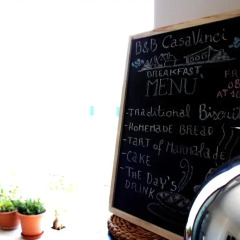 B&B CasaVinci
BREAKFAST
MENU
FR
08
AT 10
-Traditional Biscuit
-Homemade Bread
-Tart of Marmalade
-Cake
-The Day's
Drink